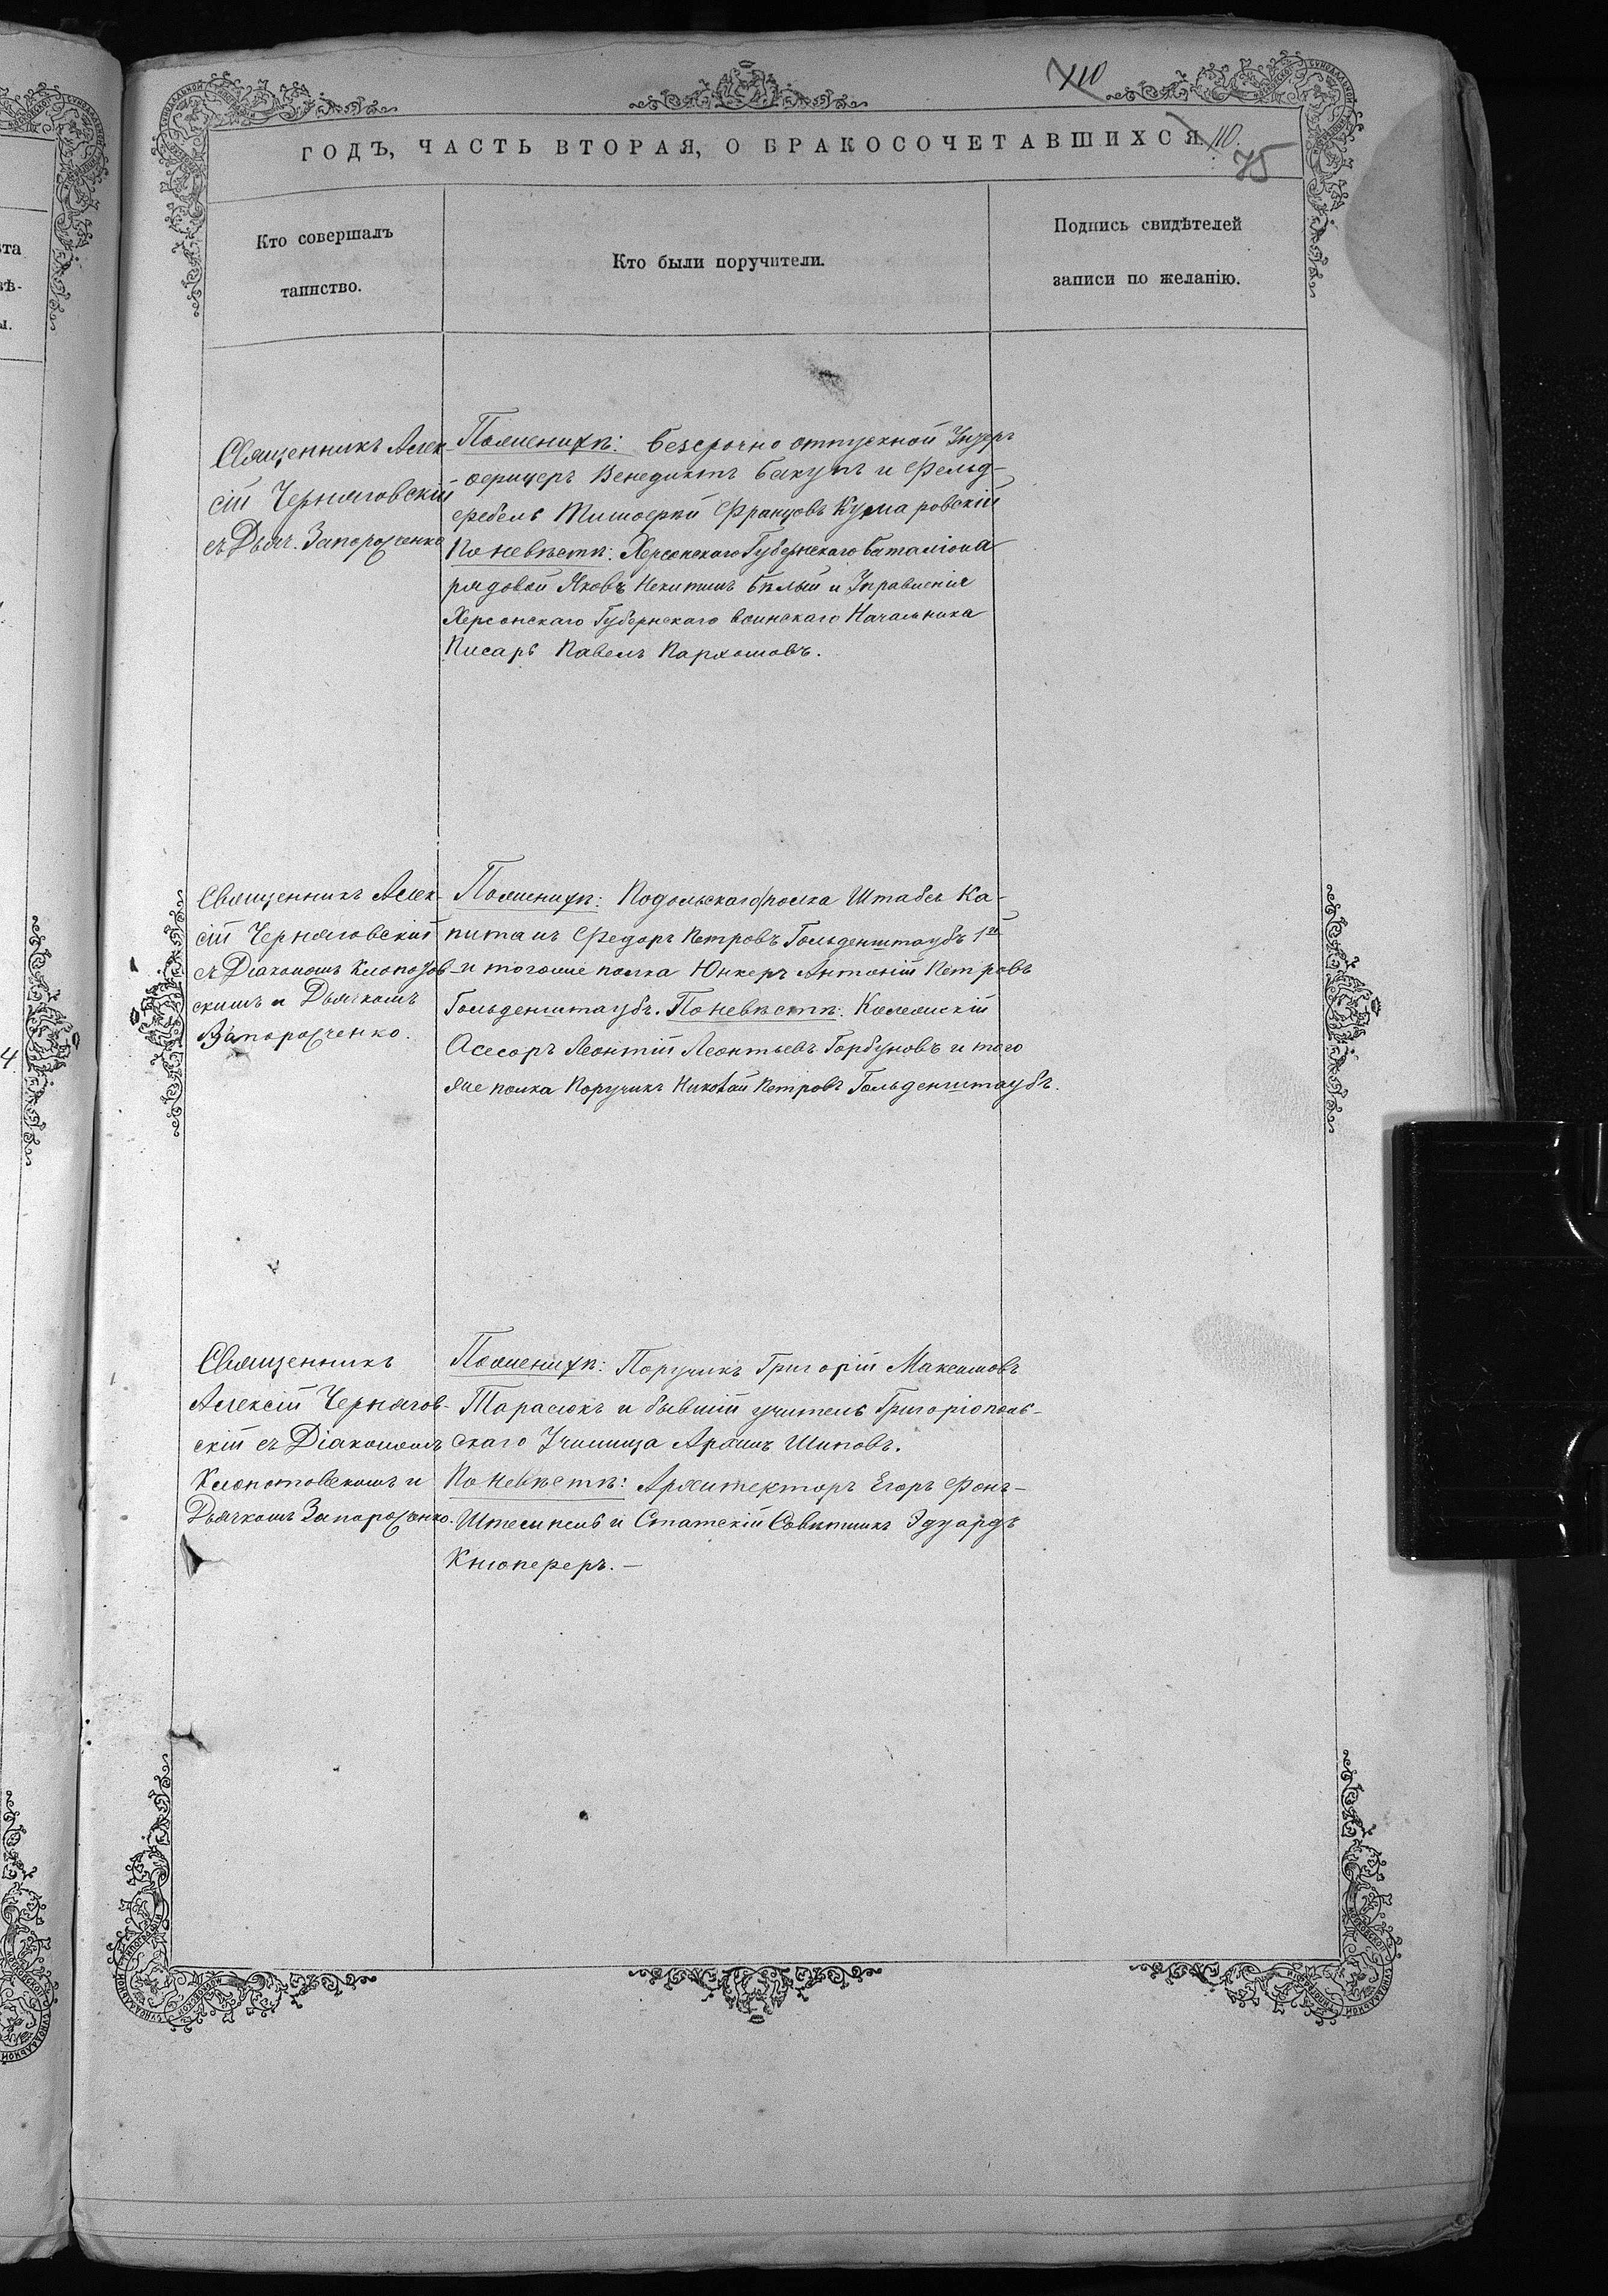 110
ГОДЪ, ЧАСТЬ ВТОРАЯ, О БРАКОСОЧЕТАВШИХСЯ. 110.
75
Кто совершалъ
таинство.
Кто были поручители.
Подпись свидѣтелей
записи по желанію.
Священникъ Алек-
сій Черняговскій
съ Дьяч. Запорожченко
По женихѣ: безсрочно отпускной Унтеръ
офицеръ Венедиктъ Бакунъ и Фельд-
фебель Францовъ Кумаровскій
По невѣстѣ: Херсонскаго Губернскаго баталіона
рядовой Яковъ Никитинъ Бѣлый и Управленія
Херсонскаго Губернскаго воинскаго Начальника
Писарь Павелъ Пархомовъ.
Священникъ Алек-
сій Черняговскій
съ Діакономъ Клопотов-
скимъ и Дьячкомъ
Запорожченко.
По женихѣ: Подольскаго полка Штабсъ Ка-
питанъ Федоръ Петровъ Гольденштаубъ 1й
и тогоже полка Юнкеръ Антоній Петровъ
Гольденштаубъ. По невѣстѣ: Колежскій
Асесоръ Леонтій Леонтьевъ Горбуновъ и того
же полка Поручикъ Николай Петровъ Гольденштаубъ.
4
Священникъ
Алексій Чернягов-
скій съ Діакономъ
Клопотовскимъ и
Дьячкомъ Запорожченко.
По женихѣ: Поручикъ Григорій Максимовъ
Тарасюкъ и бывшій учитель Григоріополь-
скаго Училища Архипъ Шиповъ.
По невѣстѣ: Архитекторъ Егоръ Фонъ-
Штемпель и Статскій Совѣтникъ Эдуардъ
Кнюпферъ.